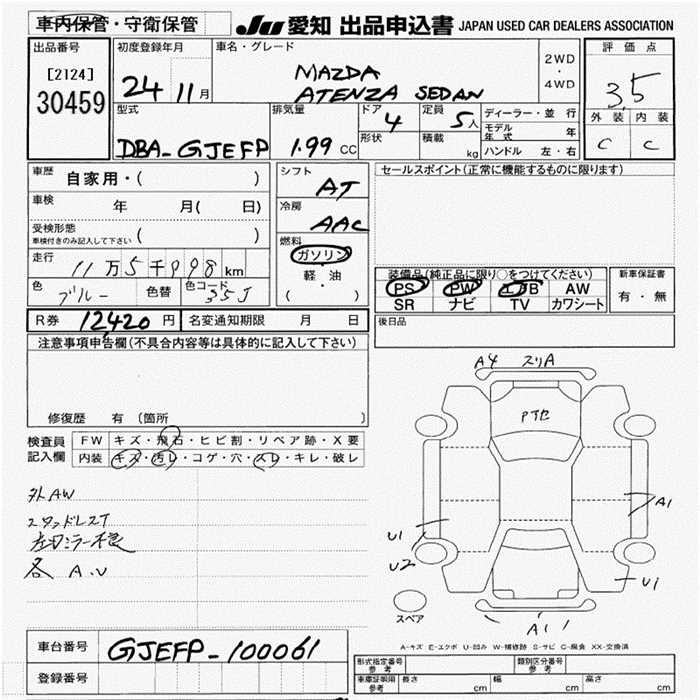 車内保管・守衛保管 JU 愛知 出品申込書 JAPAN USED CAR DEALERS ASSOCIATION
出品番号 初度登録年月 車名・グレード 評価点
[2124] 24 11月 MAZDA 2WD・4WD 3.5
30459 ATENZA SEDAN
外装 内装
型式 排気量 ドア 4 定員 5人 ディーラー・並行
C C
DBA-GJEFP 1.99 CC 形状 積載 kg モデル年式 年
ハンドル 左・右
車歴 自家用・( ) シフト AT セールスポイント(正常に機能するものに限ります)
車検 年 月( 日) 冷房 AAC
受検形態 ( )
車検付きのみ記入して下さい
燃料 ガソリン
走行 11万5千998km 軽・油 装備品(純正品に限り○をつけてください) 新車保証書
色 ブルー 色替 色コード 35J ( ) PS PW エアB AW 有・無
SR ナビ TV カワシート
R券 12,420円 名変通知期限 月 日 後日品
注意事項申告欄(不具合内容等は具体的に記入して下さい)
A4 スリA
P下セ
修復歴 有 (箇所
検査員 FW キズ・飛石・ヒビ割・リペア跡・X要
記入欄 内装 キズ・汚レ・コゲ・穴・スレ・キレ・破レ
外AW
スタッドレスT
A1
U1
U2
各 A.U
U1
スペア
A1
A-キズ E-エクボ U-凹み W-補修跡 S-サビ C-腐食 XX-交換済
車台番号 GJEFP-100061
登録番号
形式指定番号 参考 類別区分番号 参考
車庫証明用 参考 長さ cm 幅 cm 高さ cm